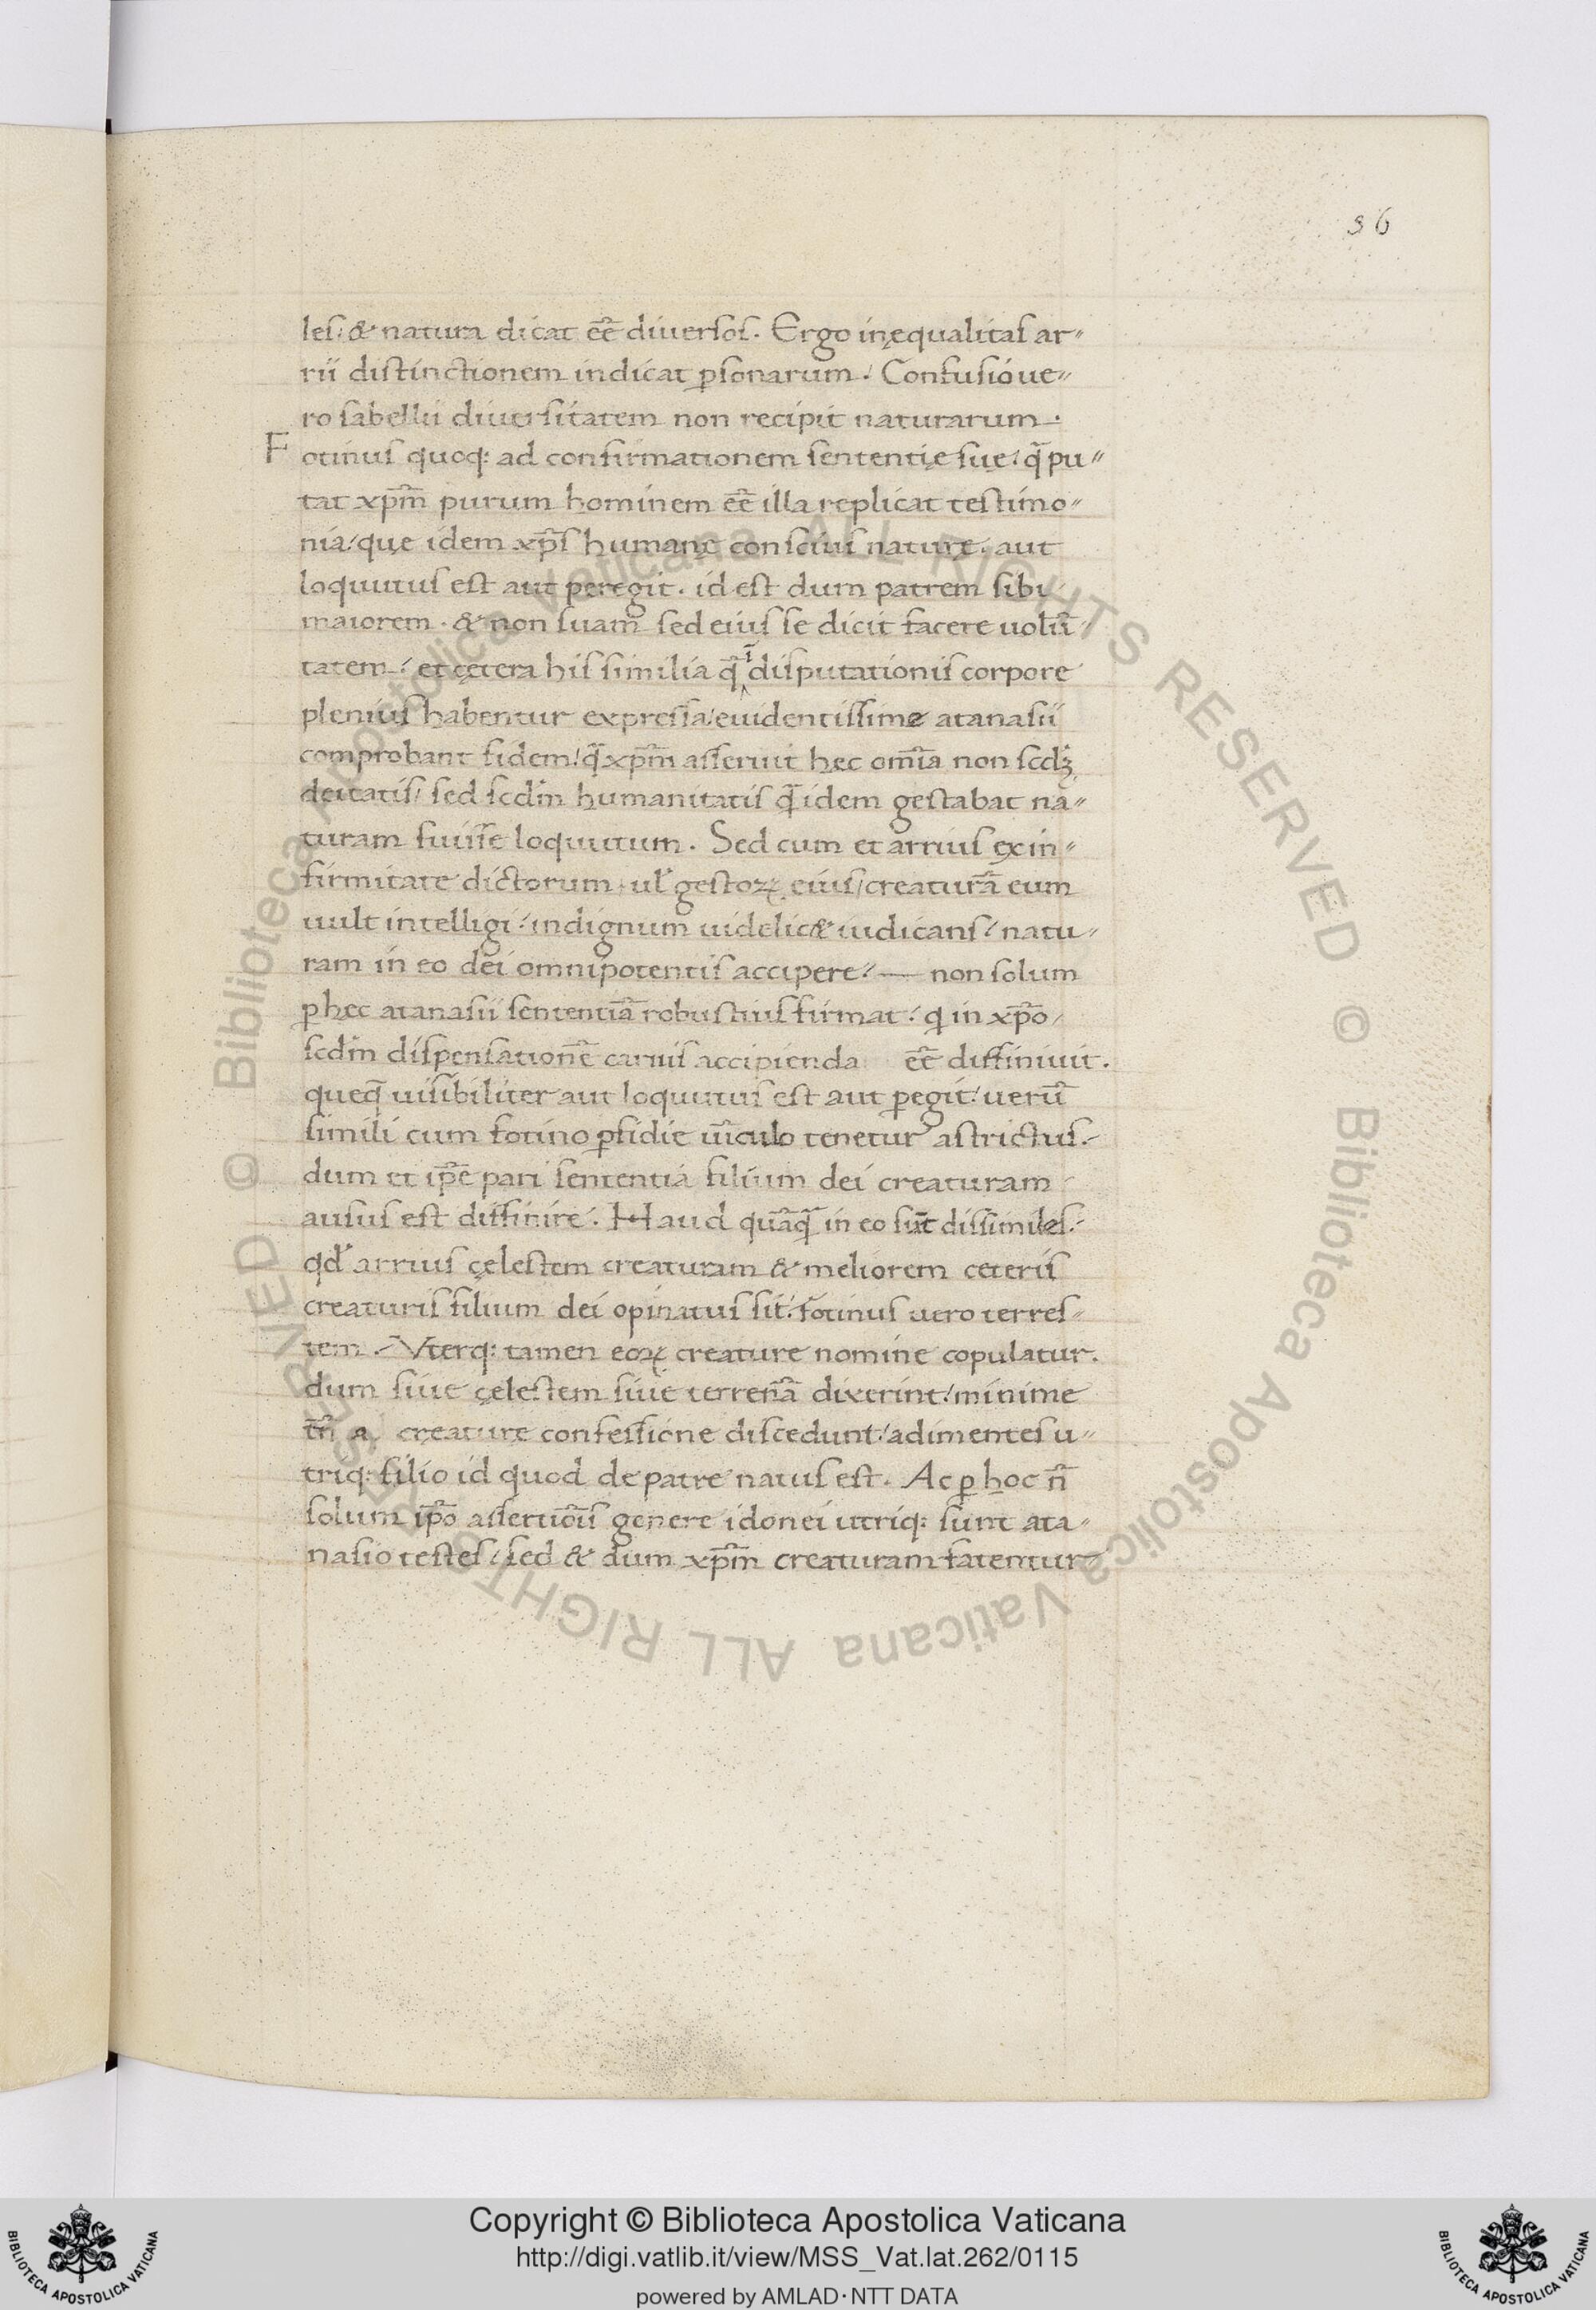 36
les: & natura dicat eē diuersos. Ergo inęqualitas ar-
rii distinctionem indicat ꝑsonarum. Confusio ue-
ro sabellii diuersitatem non recipit naturarum.
Fotinus quoq: ad confirmationem sententię suę/ q̄ pu-
tat xp̄m purum hominem eē illa replicat testimo-
nia/ quę idem xp̄s humanę conscius naturę. aut
loquutus est aut peregit. id est dum patrem sibi
maiorem. & non suam sed eius se dicit facere uolū-
tatem/ et cętera his similia q̄ ī disputationis corpore
plenius habentur expressa/ euidentissime atanasii
comprobant fidem/ q̄ xp̄m asseruit hęc om̄ia non scdꝫ
deitatis/ sed scdm̄ humanitatis q̄ idem gestabat na-
turam fuisse loquutum. Sed cum et arrius ex in-
firmitate dictorum ul' gestoꝝ eius/ creaturā eum
uult intelligi/ indignum uidelic& iudicans/ natu-
ram in eo dei omnipotentis accipere/ — non solum
ꝑ hęc atanasii sententiā robustius firmat/ q in xp̄o
scdm̄ dispensationē carnis accipienda eē diffiniuit.
queq̄ uisibiliter aut loquutus est aut ꝑegit/ uerū
simili cum fotino ꝑfidie uīculo tenetur astrictus.
dum et ip̄e pari sententia filium dei creaturam
ausus est diffinire. Haud quāq̄ in eo sūt dissimiles.
qd' arrius cęlestem creaturam & meliorem ceteris
creaturis filium dei opinatus sit/ fotinus uero terres-
tem. Vterq: tamen eoꝝ creature nomine copulatur.
dum siue cęlestem siue terrenā dixerint/ minime
tn̄ a creaturę confessione discedunt/ adimentes u-
triq: filio id quod de patre natus est. Ac ꝑ hoc n̄
solum ip̄o assertiōis genere idonei utriq: sunt ata-
nasio testes/ sed & dum xp̄m creaturam fatentur
© Biblioteca Apostolica Vaticana ALL RIGHTS RESERVED © Biblioteca Apostolica Vaticana ALL RIGHTS RESERVED
Copyright © Biblioteca Apostolica Vaticana
http://digi.vatlib.it/view/MSS_Vat.lat.262/0115
powered by AMLAD·NTT DATA
BIBLIOTECA APOSTOLICA VATICANA
BIBLIOTECA APOSTOLICA VATICANA